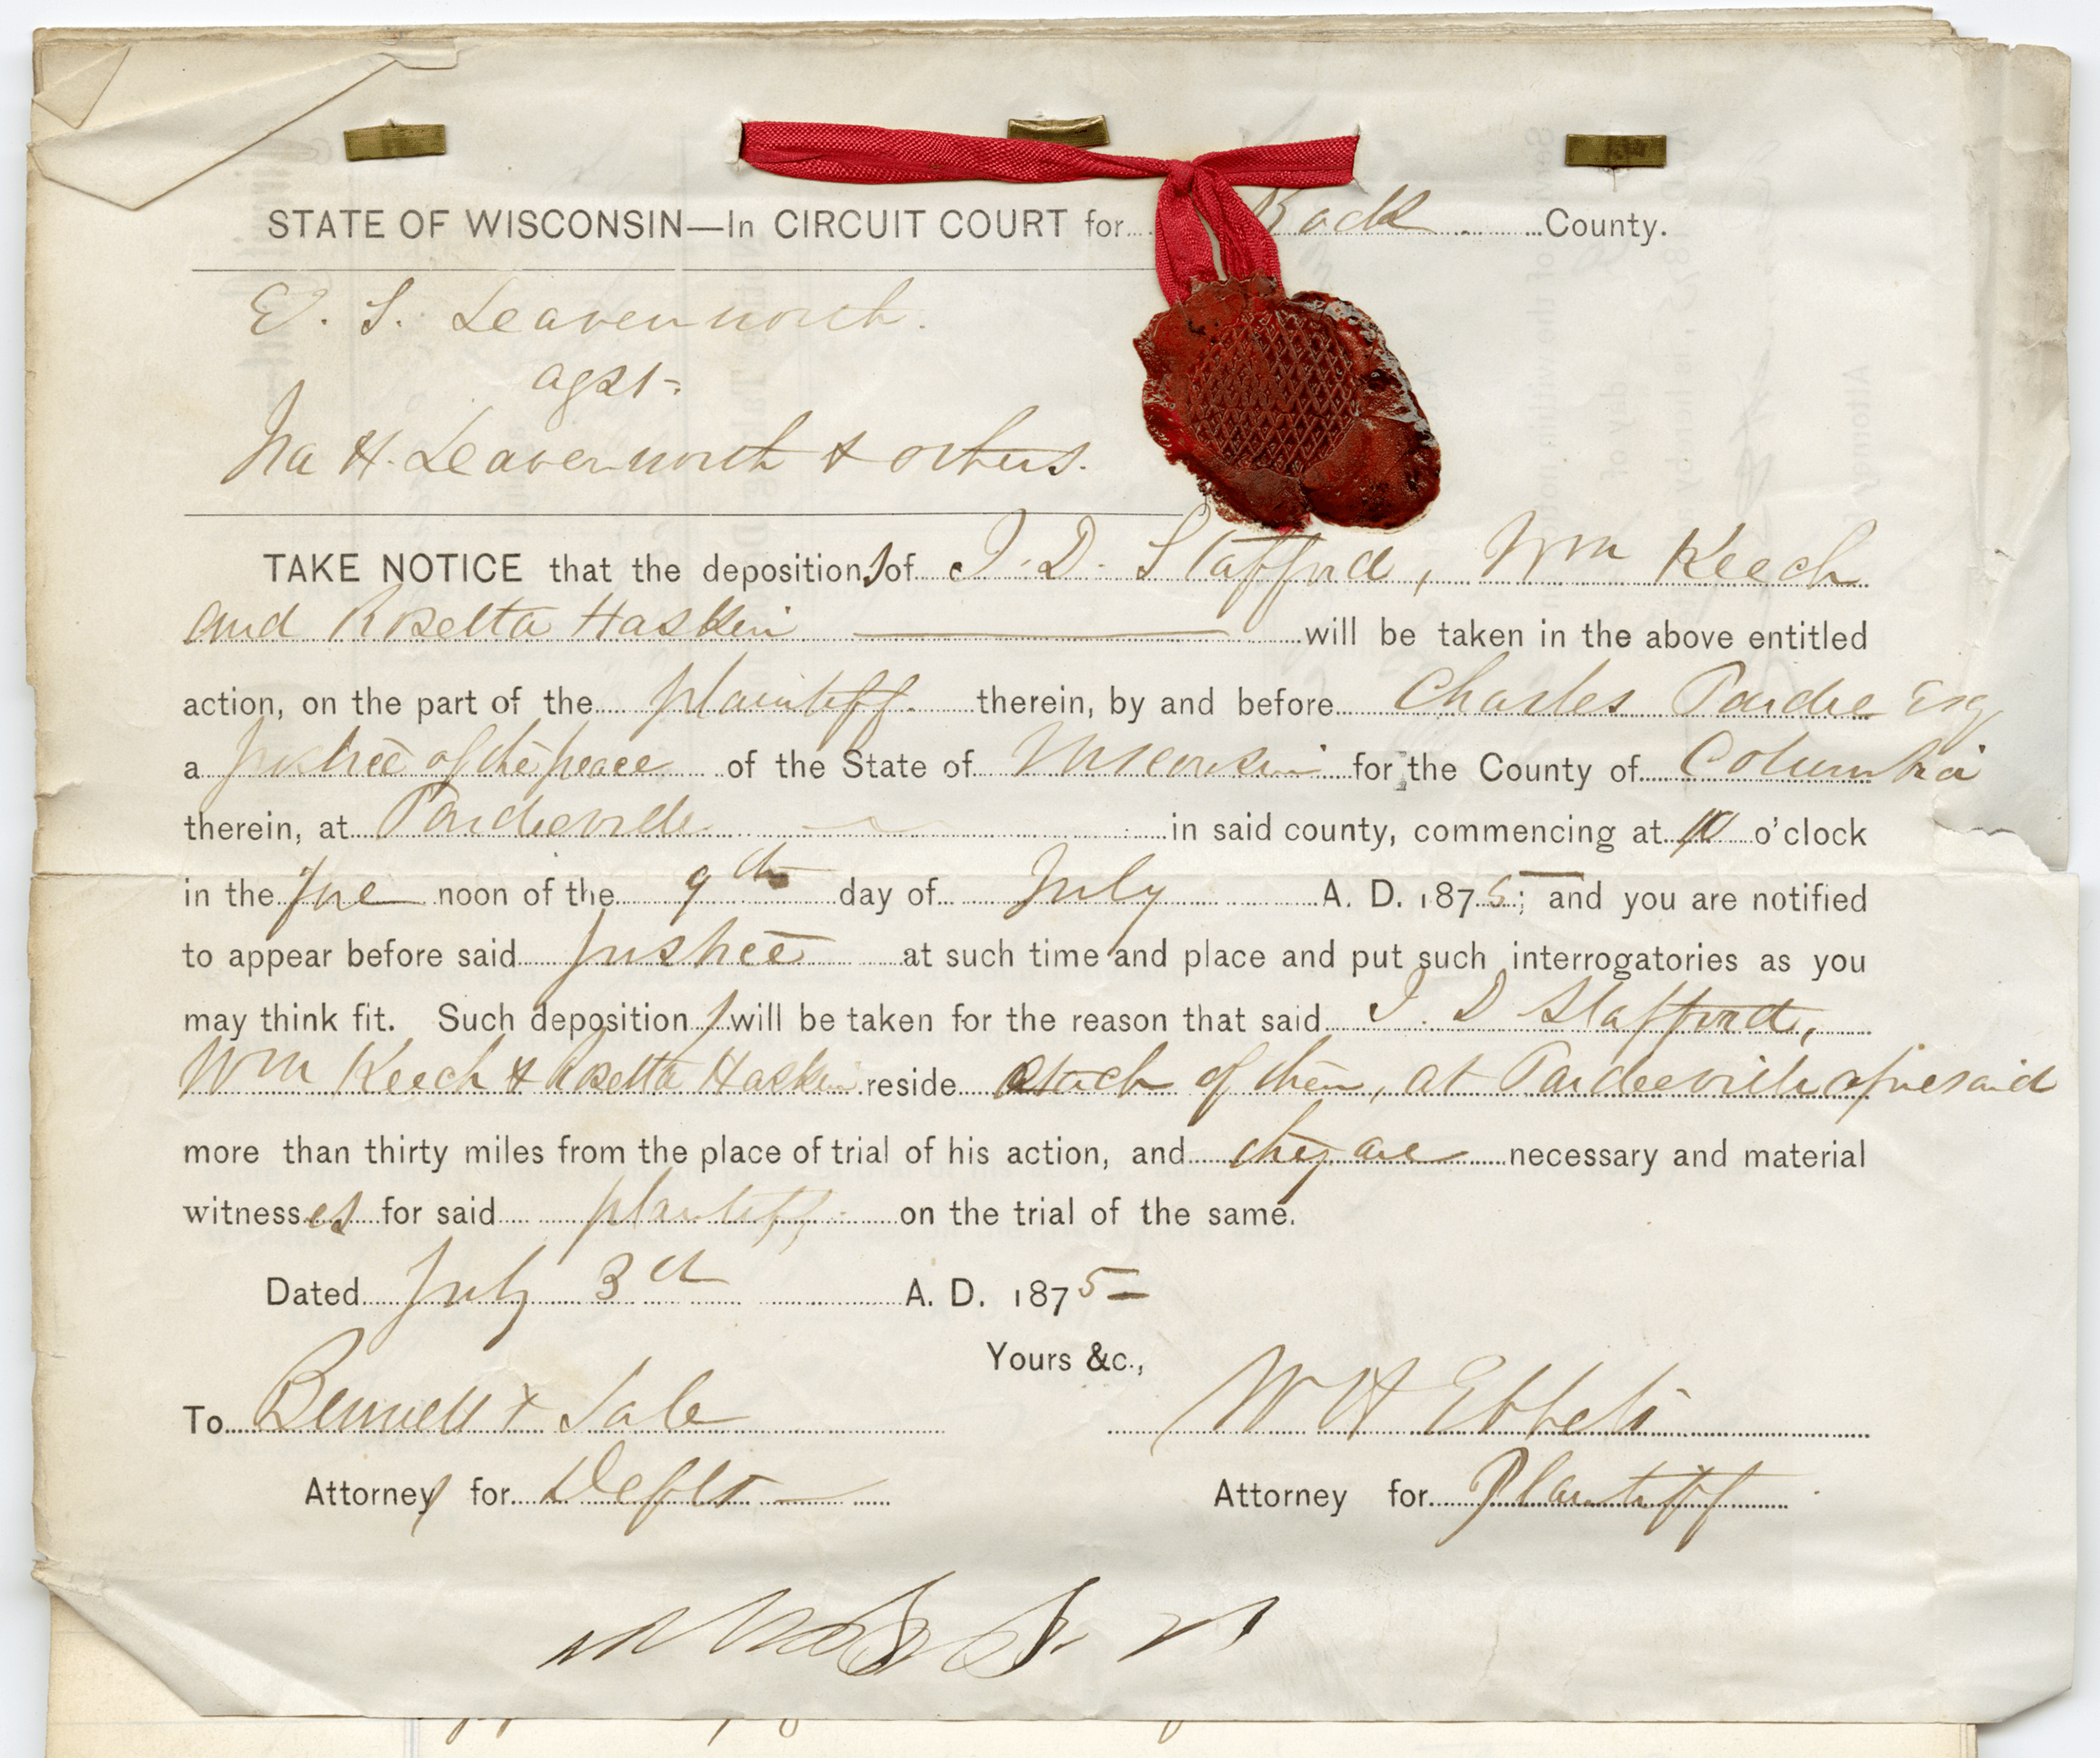 STATE OF WISCONSIN—In CIRCUIT COURT for Rock County.
E. S. Leavenworth.
agst.
Ira H. Leavenworth & others.
TAKE NOTICE that the depositions of I. D. Stafford, Wm Keech
and Rosetta Haskin will be taken in the above entitled
action, on the part of the plaintiff. therein, by and before Charles Pardee Esq
a justice of the peace of the State of Wisconsin for the County of Columbia
therein, at Pardeeville in said county, commencing at 10 o'clock
in the fore noon of the 9th day of July A. D. 1875; and you are notified
to appear before said justice at such time and place and put such interrogatories as you
may think fit. Such depositions will be taken for the reason that said I. D Stafford,
Wm Keech & Rosetta Haskin reside each of them, at Pardeeville aforesaid
more than thirty miles from the place of trial of his action, and they are necessary and material
witnesses for said plaintiff on the trial of the same.
Dated July 3d A. D. 1875
Yours &c.,
To Bennett & Sale W H Ebbets
Attorneys for Defts Attorney for Plaintiff